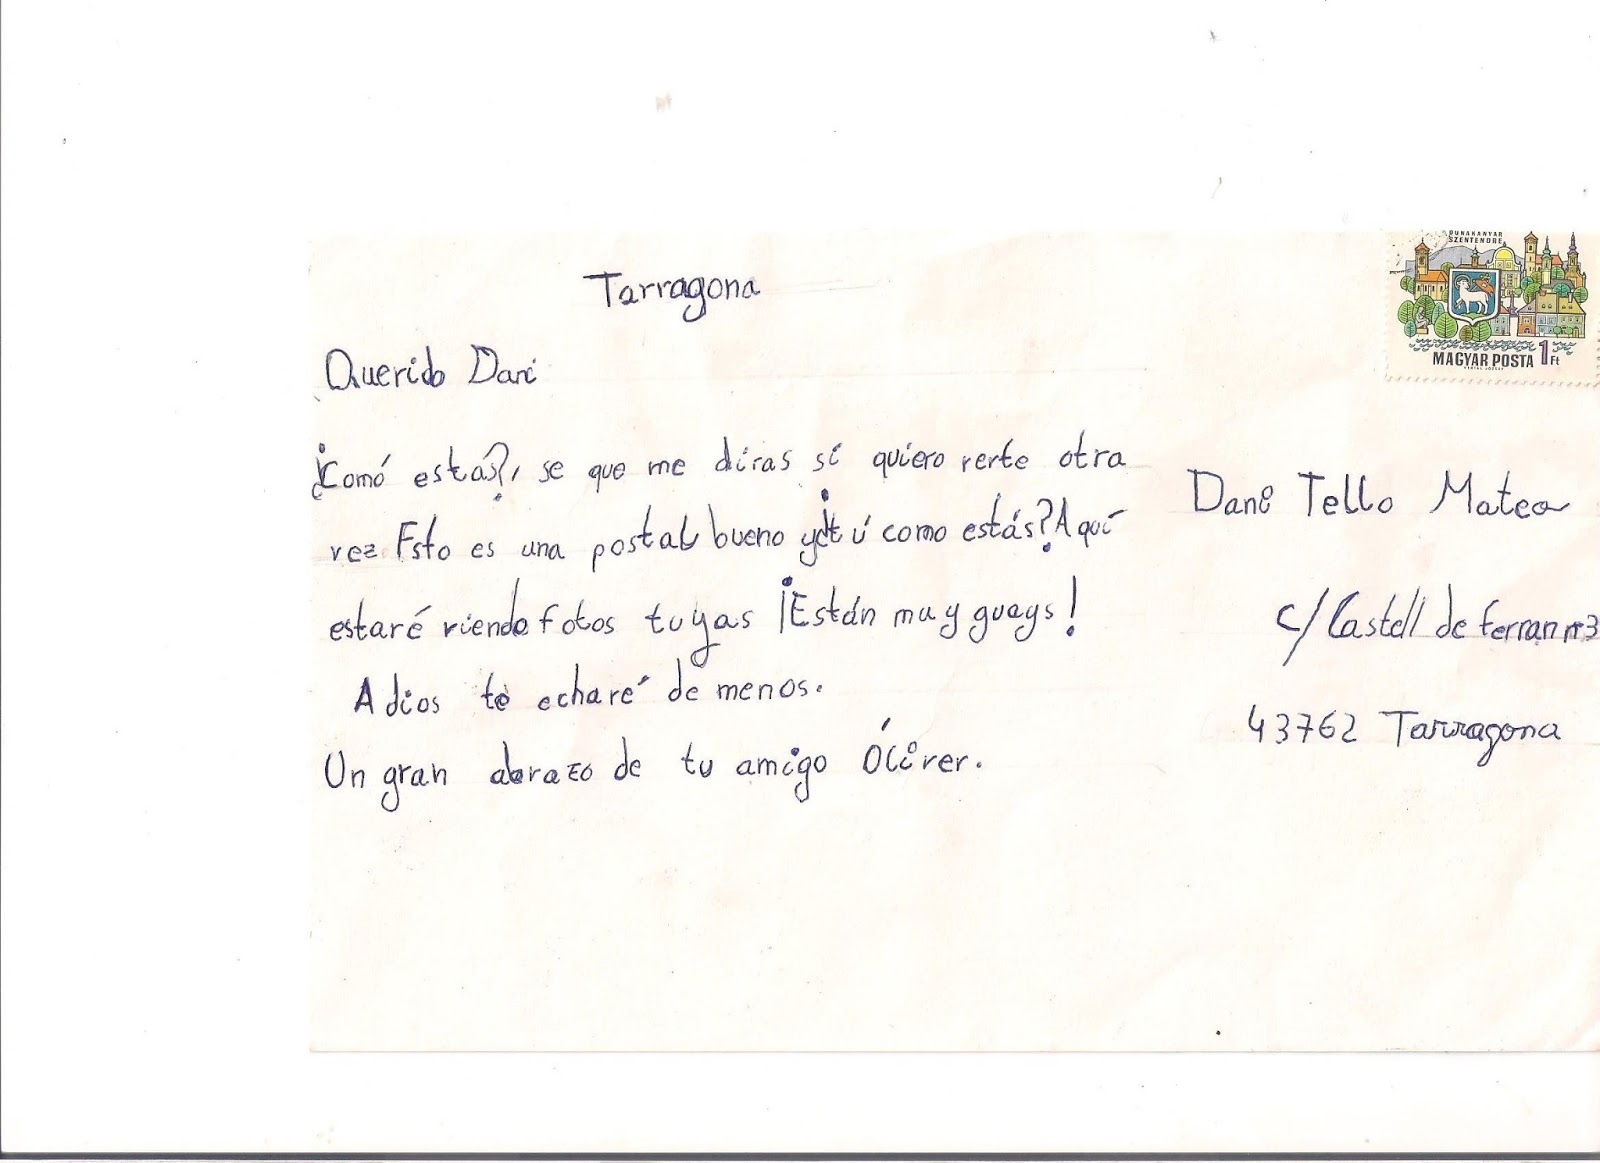 DUNAKANYAR
SZENTENDRE
MAGYAR POSTA 1 Ft
Tarragona
Querido Dani
¿Comó estás?, se que me diras sí quiero verte otra
vez Esto es una postal bueno y tú como estás? Aquí
estaré viendo fotos tuyas ¡Están muy guays!
Adios te echaré de menos.
Un gran abrazo de tu amigo Óliver.
Dani Tello Mateo
C/ Castell de Ferran nº3
43762 Tarragona